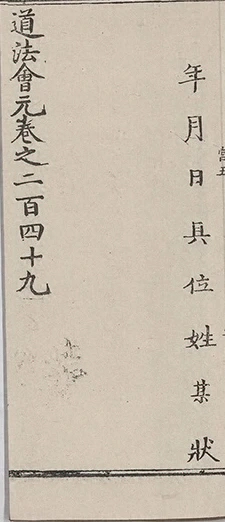 年月日具位姓某狀
道法會元卷之二百四十九